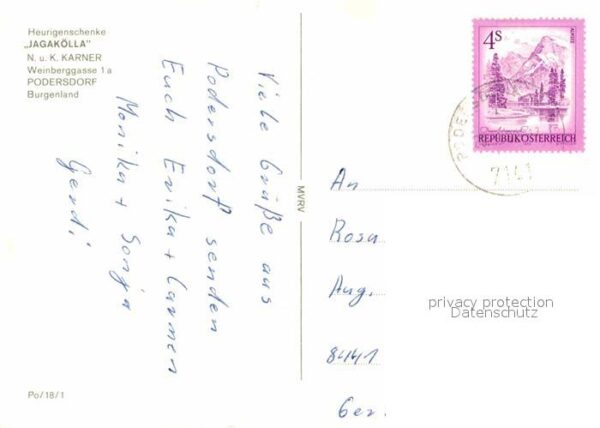 Heurigenschenke
„JAGAKÖLLA"
N. u. K. KARNER
Weinberggasse 1a
PODERSDORF
Burgenland
Viele Grüße aus
Podersdorf senden
Euch Erika + Carmen
Monika + Sonja
Gerdi
Po/18/1
MVRV
4S
REPUBLIK ÖSTERREICH
7141
An
Rosa
Aug.
privacy protection
Datenschutz
8441